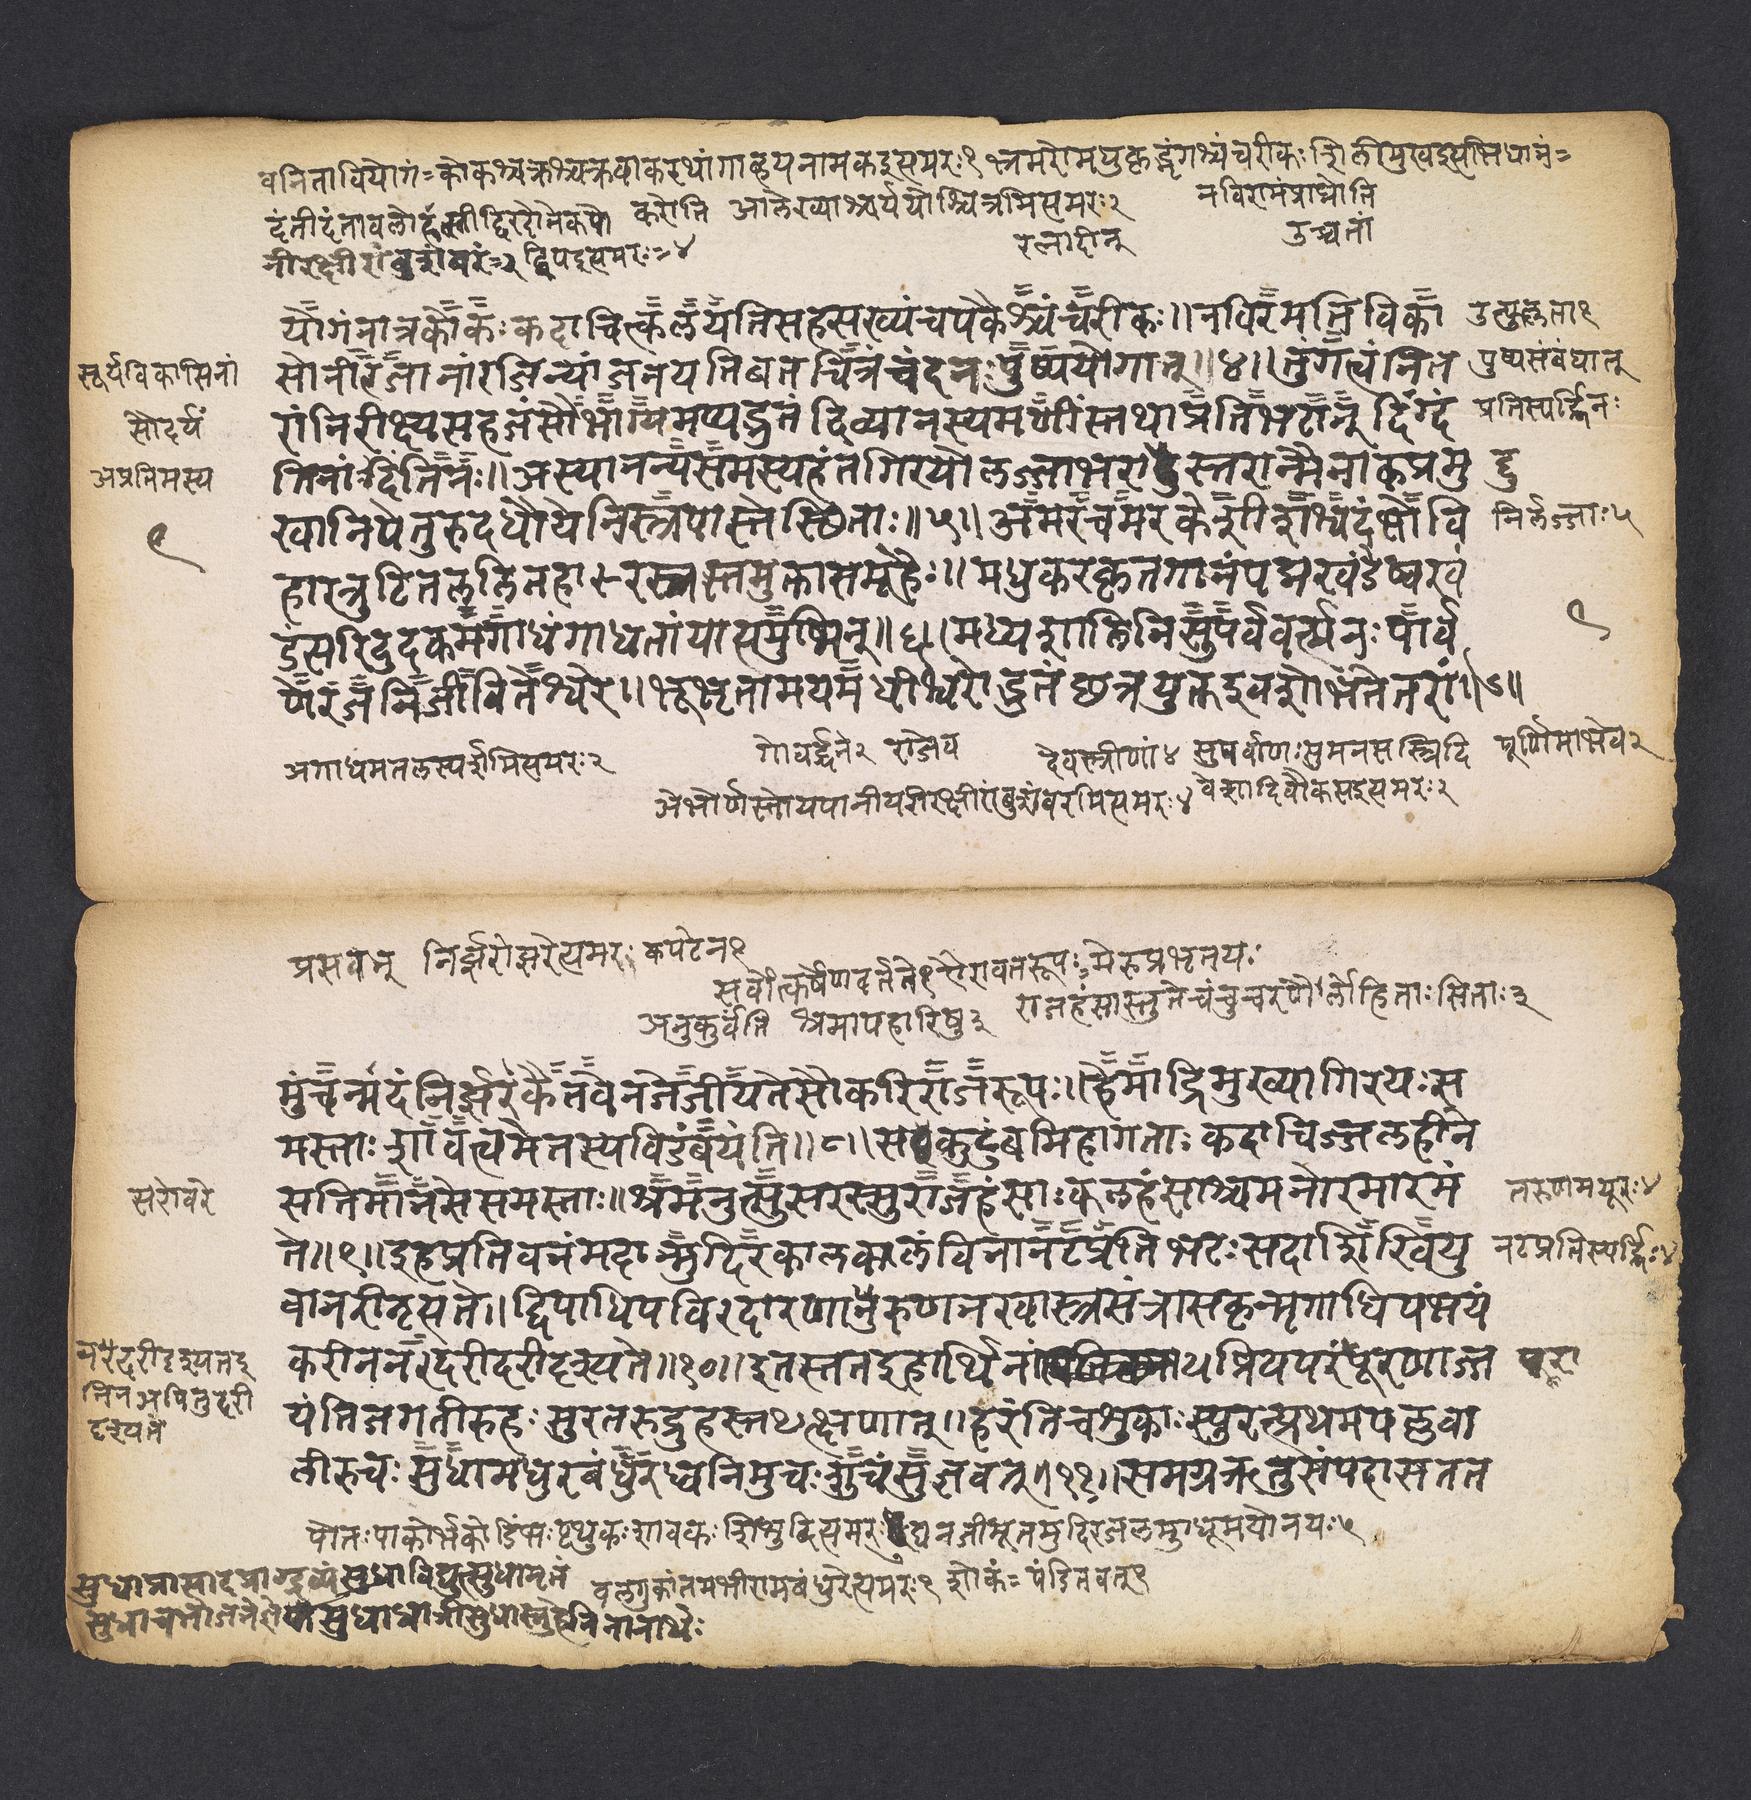 वनितावियोगं= कोकश्चक्रश्चक्रवाकरथांगाह्वयनामकइत्यमरः१ भ्रमरोमधुकृद्भृंगश्चंचरीकः शिलीमुखइत्यभिधानं=
दंतीदंतावलोर्हस्तीद्विरदोनेकपो करोति आलेख्याश्चर्ययोश्चित्रमित्यमरः२ नविरामंप्राप्नोति
नीरक्षीरांबुशंबरं=२ द्विपइत्यमरः=४ रत्नादीन् उच्चतां
योगंनात्रकोकः कदाचित्कलयतिसहसख्यंचपकैश्चंचरीकः॥नविरमतिविका उत्फुल्लता१
सूर्यविकासिनां सोनीरजानांरजिन्यांजनयतिबतचित्रंचंदनःपुष्पयोगात्॥४॥तुंगत्वंनित पुष्पसंबंधात्
सौंदर्यं रांनिरीक्ष्यसहजंसौभाग्यमप्यद्भुतंदिव्यानस्यमणींस्तथाप्रतिभटान् दिग्दं प्रतिस्पर्द्धिनः
अप्रतिमस्य तिनांदंतिनः॥अस्यानन्यसमस्यहंतगिरयोलज्जाभरादुस्तरान्मैनाकप्रमु
खानिपेतुरुदधौयेनिस्त्रपास्तेस्थिताः॥५॥अमरचमरकेशीशश्वदंभोवि निर्लज्जाः५
हारत्रुटितललितहारस्रस्तमुक्तासमूहैः॥मधुकरकृतगानंपद्मखंडेष्वखं
डंसरिदुदकमगाधंगाधतांयात्यमुष्मिन्॥६॥मध्यशालिनिसुपर्ववर्त्मनःपार्व
णेरजनिजीवितेश्वरे॥भूभृतामयमधीश्वरोद्भुतंछत्रयुक्तइवशोभतेतरां॥७॥
अगाधमतलस्पर्शमित्यमरः२ गोवर्द्धने२ राजेव देवस्त्रीणां४ सुपर्वाणःसुमनसस्त्रिदि पूर्णिमाभवे२
अंभोर्णस्तोयपानीयनीरक्षीरांबुशंबरमित्यमरः४ वेशादिवौकसइत्यमरः२
प्रसवन् निर्झरोझरेत्यमरः कपटेन१
सर्वोत्कर्षेणवर्तते१ ऐरावतरूपः= मेरुप्रभृतयः
अनुकुर्वंति श्रमापहारिषु३ राजहंसास्तुतेचंचुचरणैर्लोहिताः सिताः३
मुंचन्मदंनिर्झरकैतवेनजेजीयतेसौकरिराजरूपः॥हेमाद्रिमुख्यागिरयःस
मस्ताःशावत्वमेतस्यविडंबयंति॥८॥सकुटुंबमिहागताःकदाचिज्जलहीने
सरोवरे सतिमानसेसमस्ताः॥श्रमनुत्सुसरस्सुराजहंसाःकलहंसाश्चमनोरमारमं तरुणमयूरः४
ते॥९॥इहप्रतिवनंमदान्मुदिरकालकालंविनानटप्रतिभटःसदाशिखियु नटप्रतिस्पर्द्धिः४
वानरीनृत्यते॥द्विपाधिपविदारणारुणनखास्त्रसंत्रासकृन्मृगाधिपभयं
नरेदरीदृश्यतइ करीननरदरीदरीदृश्यते॥१०॥इतस्ततइहार्थिनां
तिनअपितुदरी यंतिजगतीरुहःसुरतरुद्रुहस्तत्क्षणात्॥हरंतिचशुकाःस्फुरत्प्रथमपल्लवा
दृश्यते लीरुचःसुधामधुरबंधुरध्वनिमुचःशुचंसुज्ञवत्॥११॥समग्रऋतुसंपदासतत
पोतःपाकोर्भकोडिंभःपृथुकःशावकःशिशुरित्यमरः घनजीमूतमुदिरजलमुग्धूमयोनयः५
सुधाप्रासादभाग्द्रव्यंसुधाविद्युत्सुधामृतं वल्गुकांतमभीरामबंधुरेत्यमरः१ शोकं= पंडितवत्१